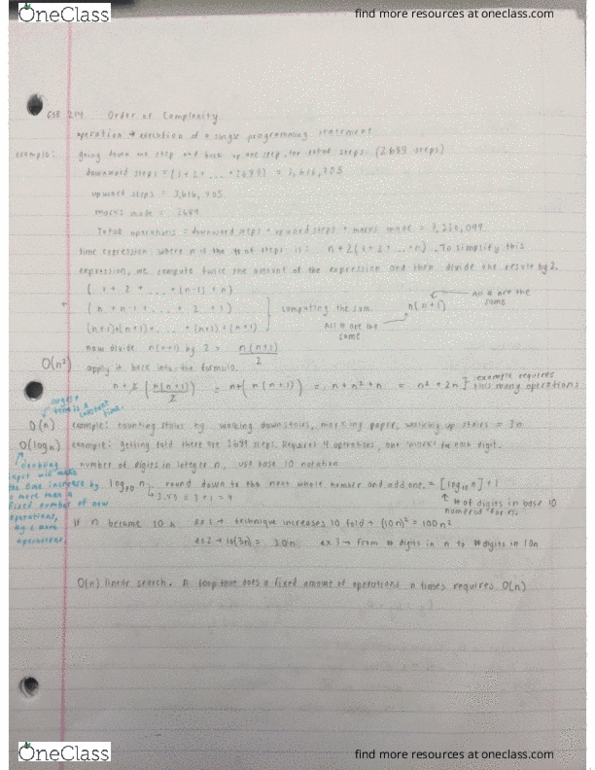 OneClass
find more resources at oneclass.com
CSE 214 Order of Complexity
operation → execution of a single programming statement
example: going down one step and back up one step, for total steps (2689 steps)
downward steps = (1+2+ ... +2689) = 3,616,705
upward steps = 3,616,705
marks made = 2689
Total operations = downward steps + upward steps + marks made =
time expression where n is the # of steps is: n+2(1+2+...+n). To simplify this
expression, we compute twice the amount of the expression and then divide the result by 2.
(1+2+ ... +(n-1)+n)
+ (n+n-1+ ... +2+1) computing the sum. n(n+1) All # are the same
(n+1)+(n+1)+ ... +(n+1)+(n+1) All # are the same
now divide n(n+1) by 2 = n(n+1)/2
O(n²) apply it back into the formula.
n+2(n(n+1)/2) = n+(n(n+1)) = n+n²+n = n²+2n } example requires this many operations
O(n) example: counting stairs by walking downstairs, marking paper, walking up stairs = 3n
O(log n) example: getting told there are 2689 steps. Requires 4 operations, one "mark" for each digit.
number of digits in integer n, use base 10 notation
log₁₀ n, round down to the next whole number and add one. = [log₁₀ n]+1
↳ 3.43 = 3+1 = 4
# of digits in base 10
doubling input will make the time increase by no more than a fixed number of new operations,
if n become 10n ex 1 → technique increases 10 fold → (10n)² = 100n²
ex 2 → 10(3n) = 30n ex 3 → from # digits in n to # digits in 10n
O(n) linear search. A loop that does a fixed amount of operations n times requires O(n)
OneClass
find more resources at oneclass.com